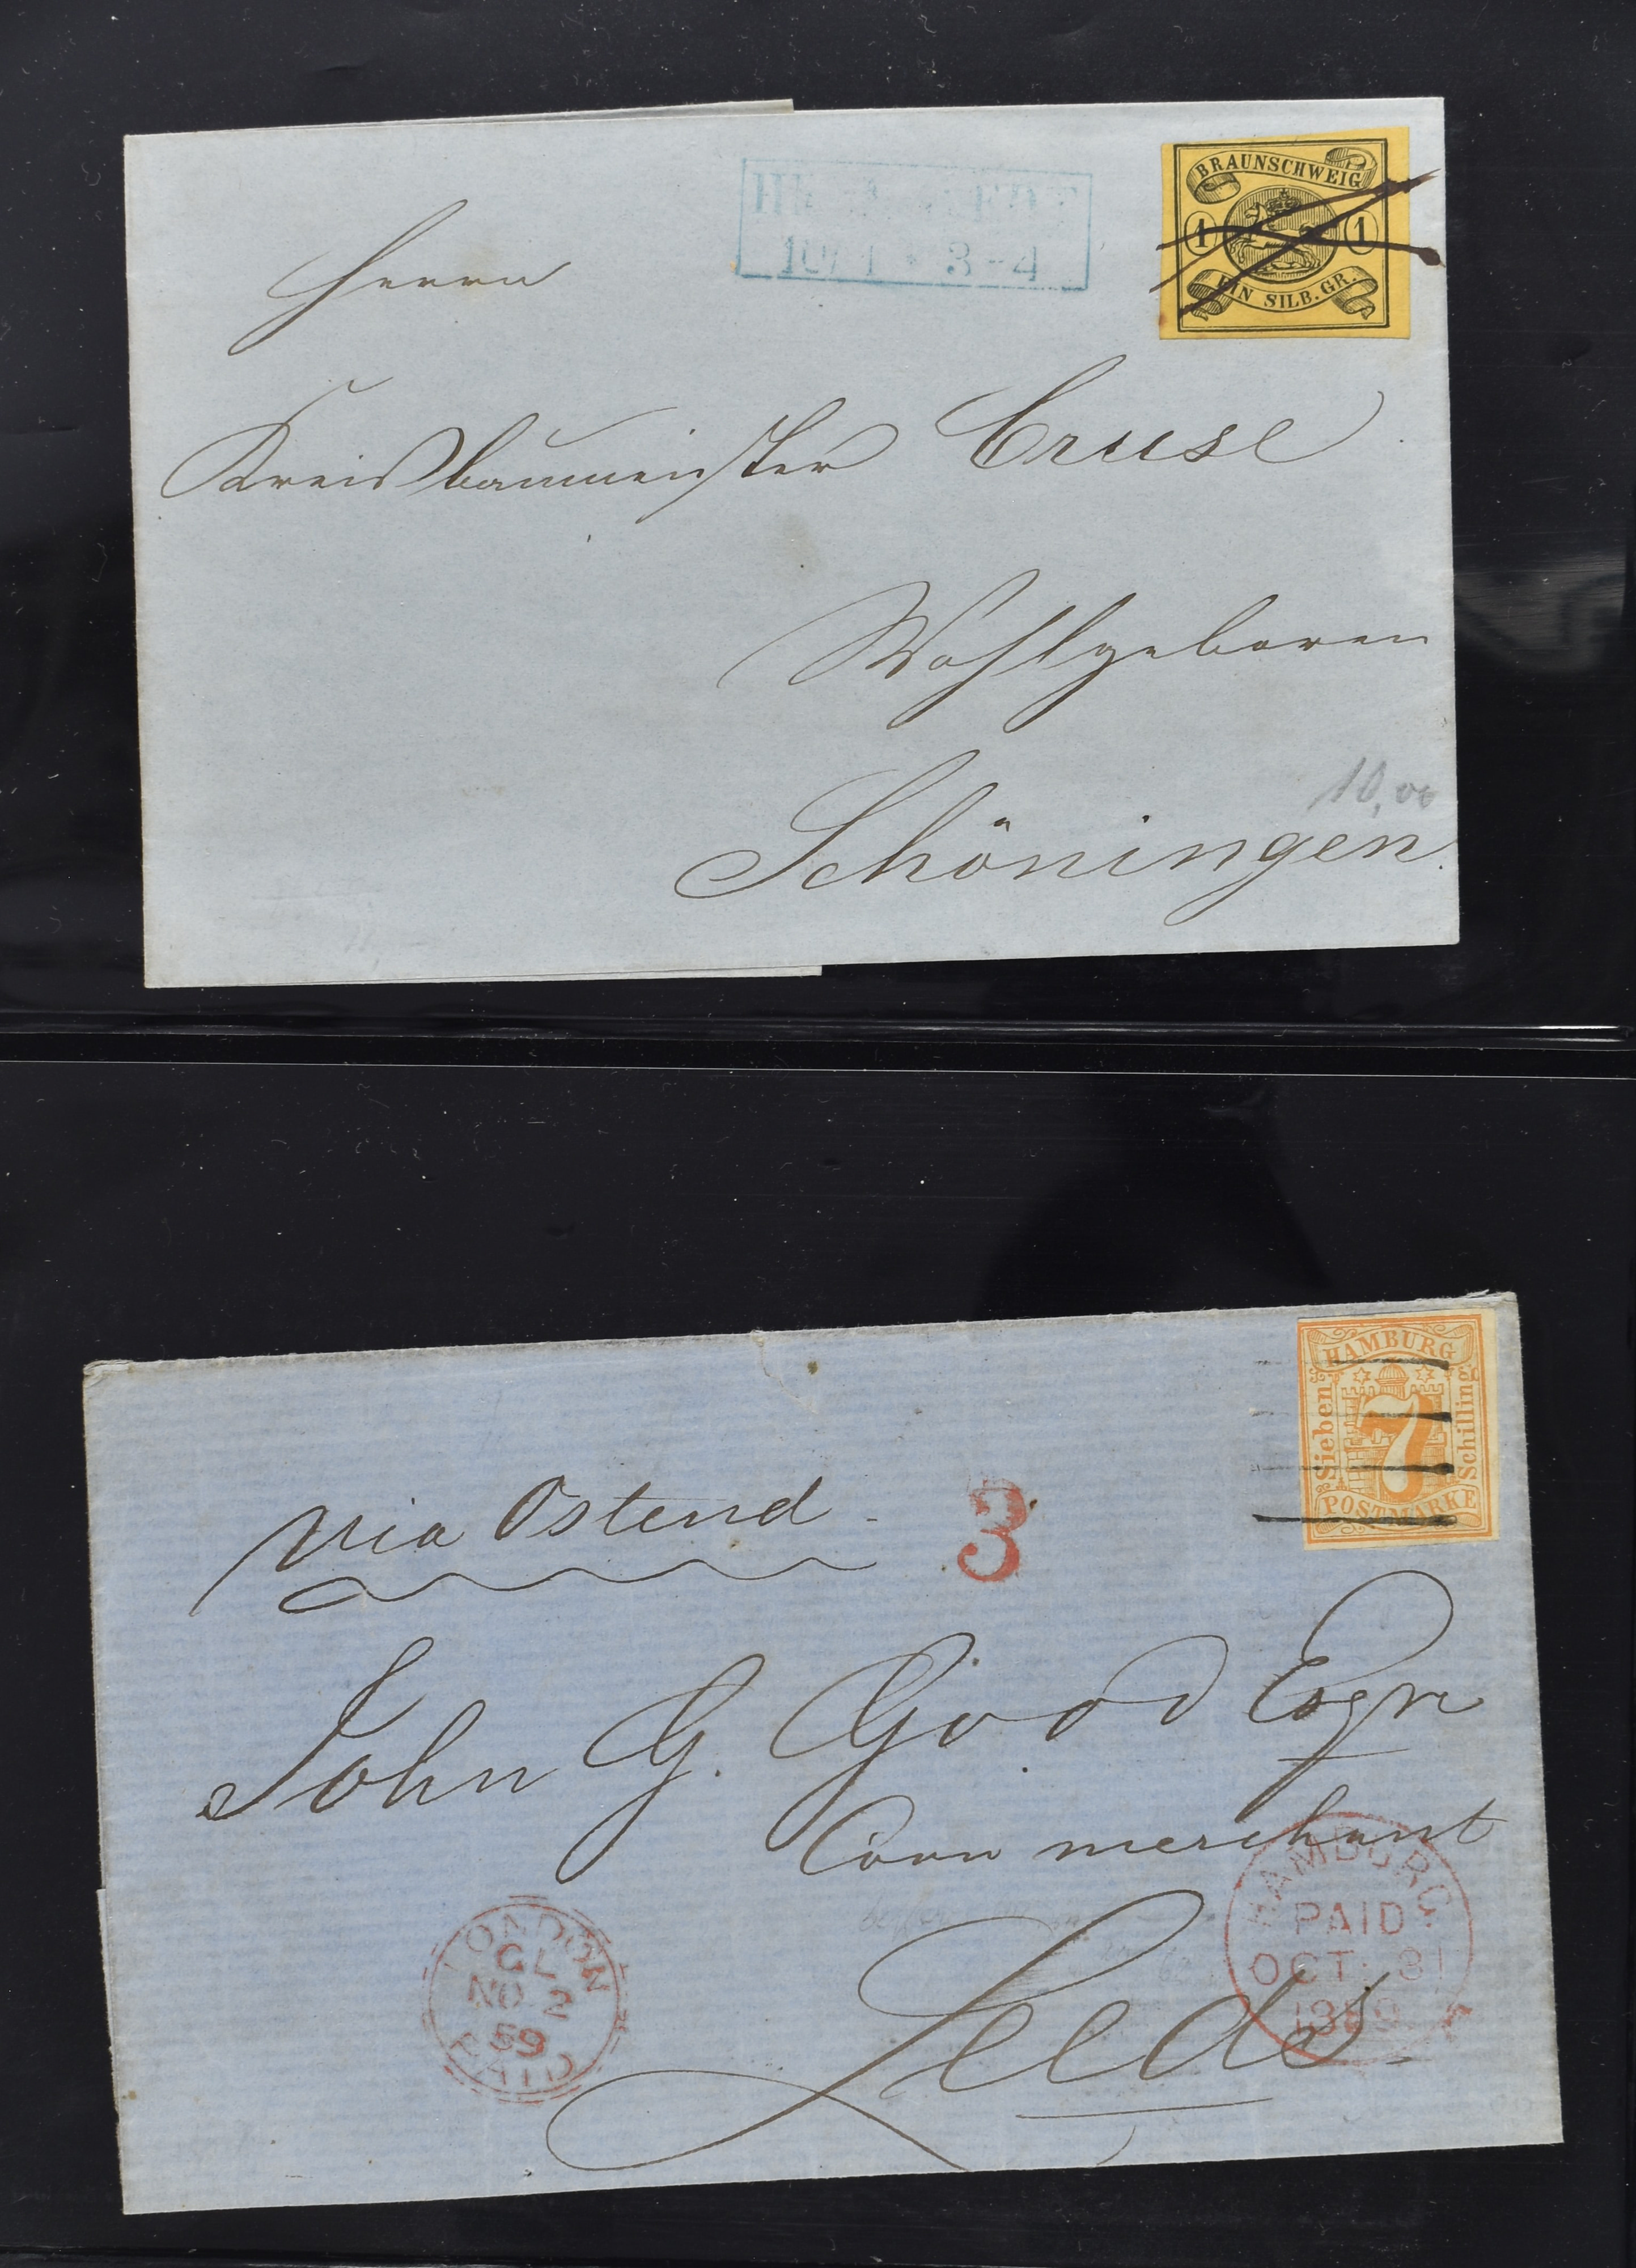 BRAUNSCHWEIG
1 1
EIN SILB. GR.
3-4
Herrn
Kreisbaumeister Cruse
Wohlgeboren
10,00
Schöningen.
HAMBURG
Sieben
7
Schilling
POSTMARKE
via Ostend
3
John G. Good Esqre
Corn merchant
Leeds
HAMBURG
PAID
OCT. 31
LONDON
CL
NO 2
59
PAID